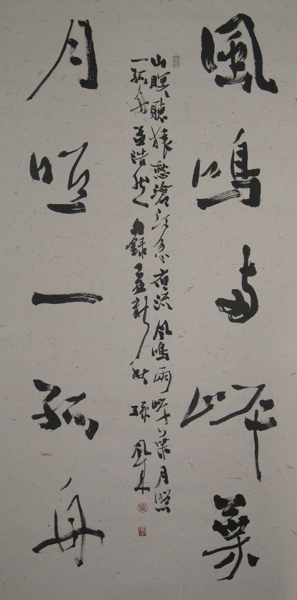 風鳴兩岸葉
月照一孤舟
山暝聽猿愁滄江急夜流風鳴兩岸葉月照
一孤舟孟浩然